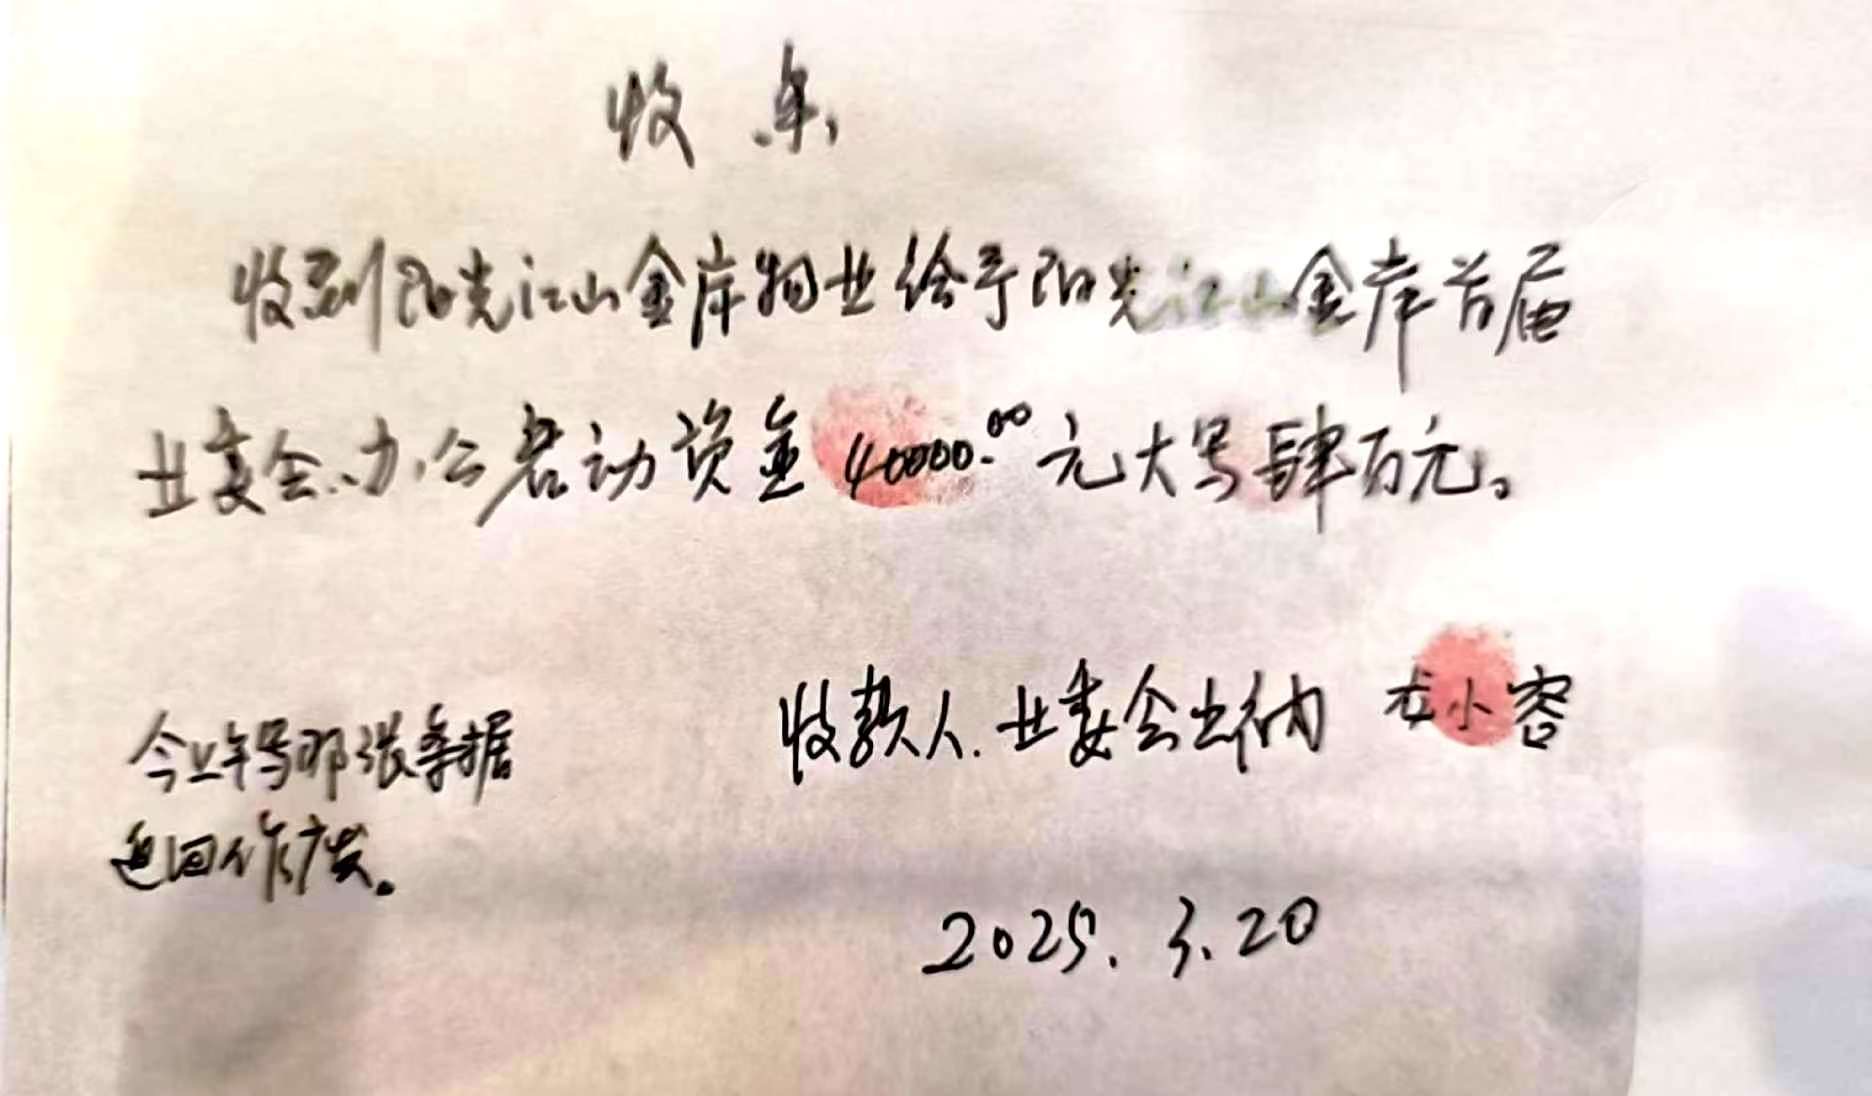 收条
收到阳光江山金岸物业给予阳光江山金岸首届
业委会办公启动资金40000.00元大写肆百元。
收款人.业委会出纳 龙小容
今上午写那张条据
返回作废。
2025.3.20